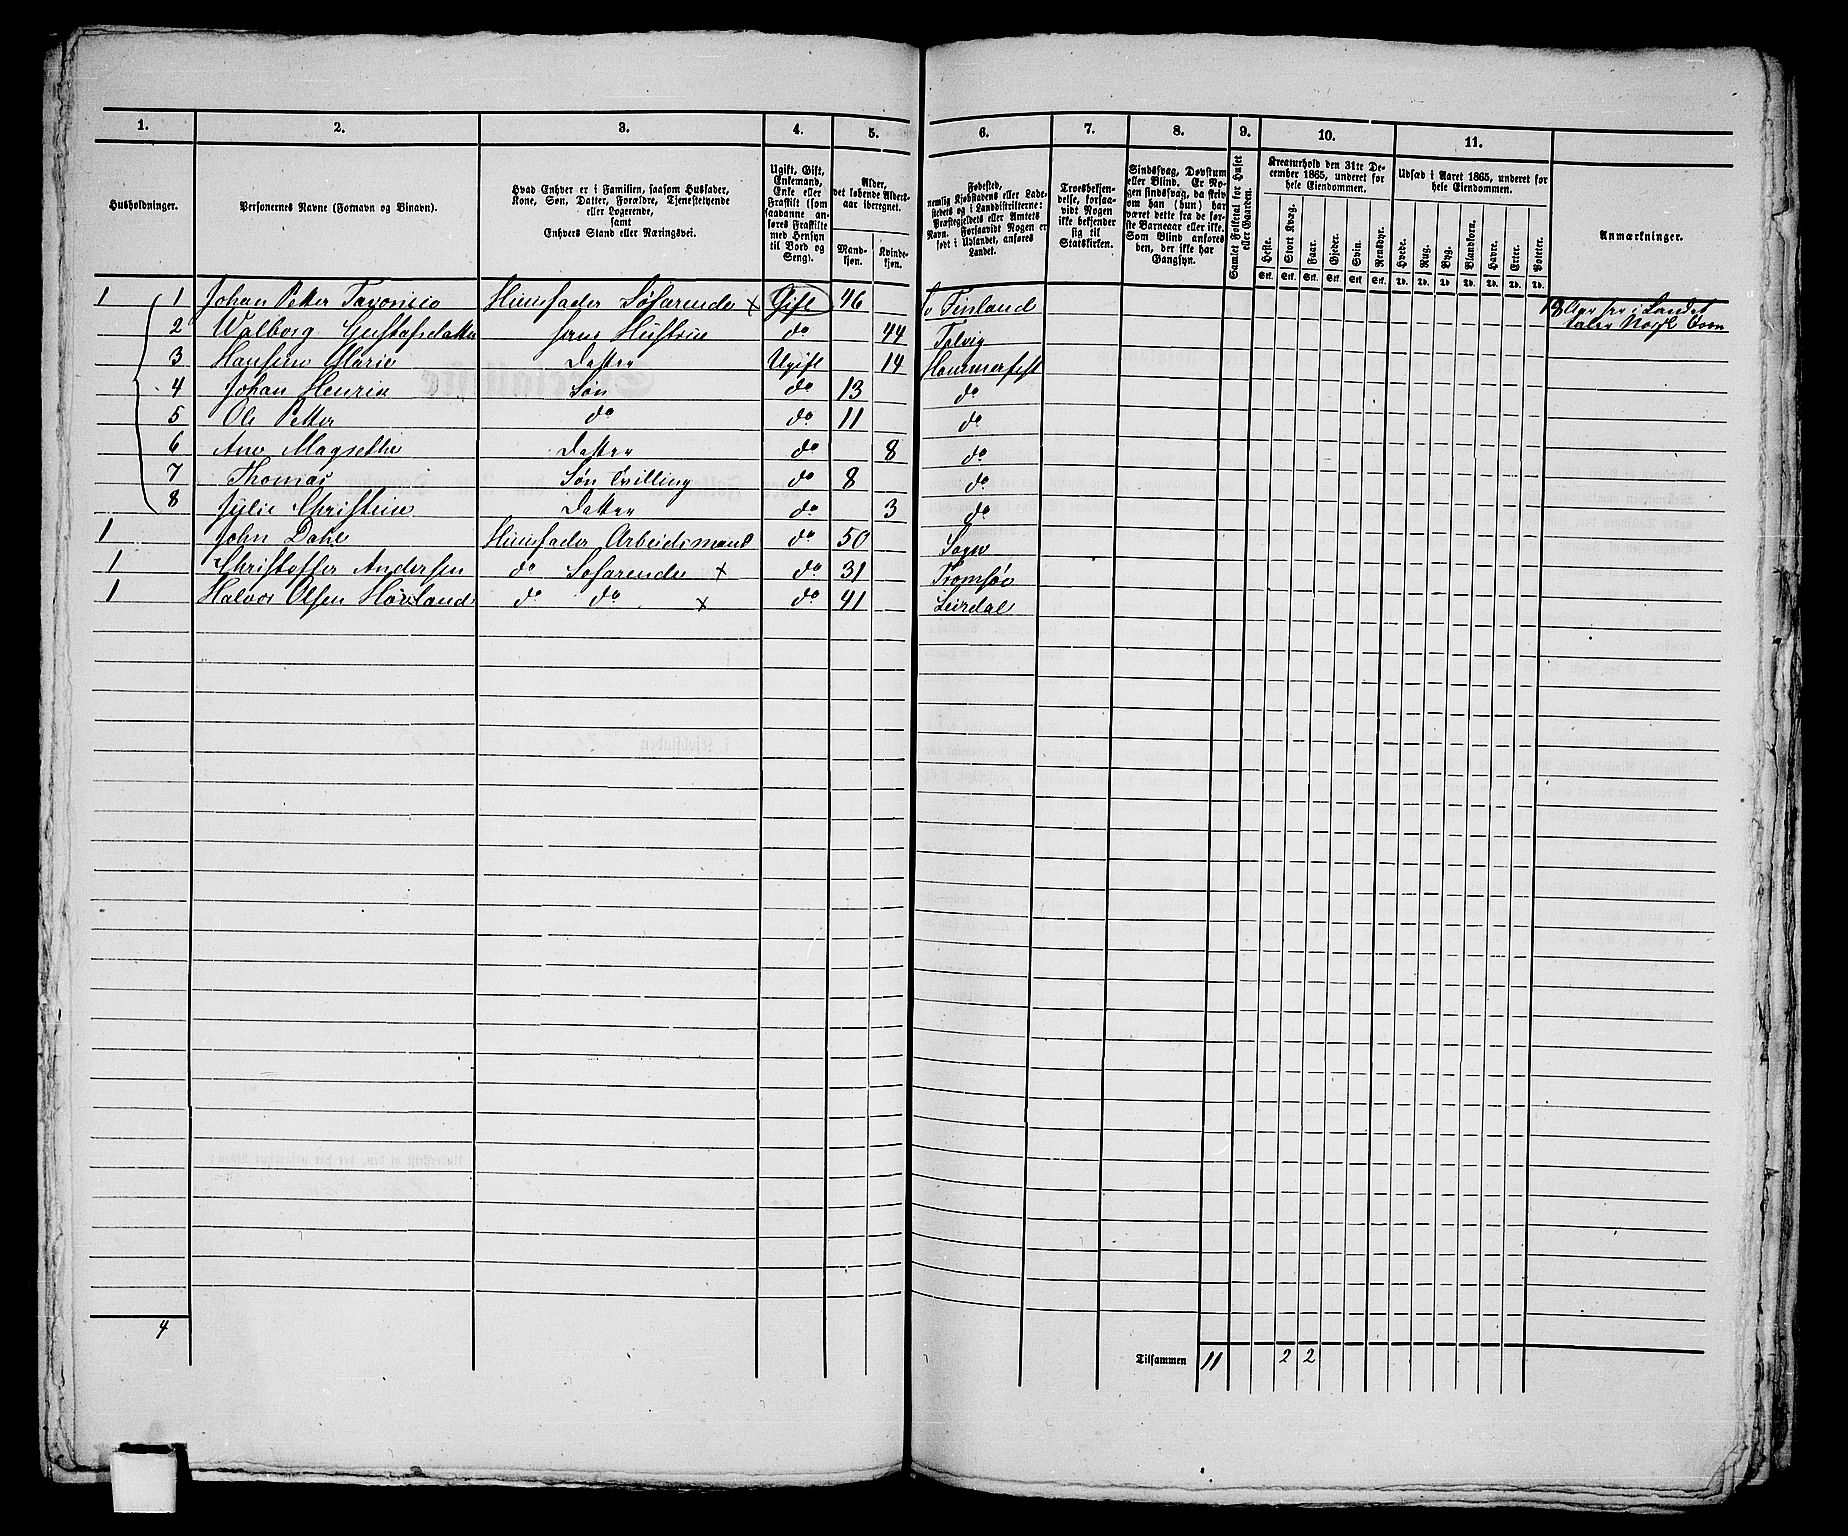 1. 2. 3. 4. 5. 6. 7. 8. 9. 10. 11.
Husholdninger.
Personernes Navne (Fornavn og Binavn).
Hvad Enhver er i Familien, saasom Husfader,
Kone, Søn, Datter, Forældre, Tjenestetyende
eller Logerende,
samt
Enhvers Stand eller Næringsvei.
Ugift, Gift,
Enkemand,
Enke eller
Fraskilt (som
saadanne an-
føres Fraskilte
med Hensyn
til Bord og
Seng).
Alder,
det løbende Alders-
aar iberegnet.
Mand-
kjøn.
Kvinde-
kjøn.
Fødested,
nemlig Kjøbstadens eller Lade-
stedets og i Landdistrikterne:
Præstegjeldets eller Amtets
Navn. Forsaavidt Nogen er
født i Udlandet, anføres
Landet.
Troesbekjen-
delse, forsaa-
vidt Nogen
ikke bekjender
sig til
Statskirken.
Sindssvag, Døvstum
eller Blind. Er No-
gen sindssvag, da skriv
om han (hun) har
været dette fra de før-
ste Barneaar eller ikke.
Som Blind anføres
den, der ikke har
Gangsyn.
Samlet Folketal for Huset
eller Gaarden.
Kreaturhold den 31te De-
cember 1865, underet for
hele Eiendommen.
Heste. Stort Kvæg. Faar. Gjeder. Svin. Rensdyr.
Stk. Stk. Stk. Stk. Stk. Stk.
Udsæd i Aaret 1865, underet for
hele Eiendommen.
Hvede. Rug. Byg. Blandkorn. Havre. Erter. Poteter.
Td. Td. Td. Td. Td. Td. Td.
Anmærkninger.
1 1 Johan Petter Huusfader Søfarende × Gift 46 Finland 13 Aar her i Landet
taler Norsk
2 Walborg Gustafsdatter hans Hustrue do 44 Talvig
3 Hansine Marie Datter Ugift 14 Hammerfest
4 Johan Henrik Søn do 13 do
5 Ole Petter do do 11 do
6 Ane Magrethe Datter do 8 do
7 Thomas Søn Tvilling do 8 do
8 Julie Christine Datter do 3 do
1 John Dahl Huusfader Arbeidsmand do 50 Sogn
1 Christoffer Andersen do Søfarende × do 31 Tromsøe
1 Halvor Olsen do do × do 41 Leirdal
4
Tilsammen 11 2 2